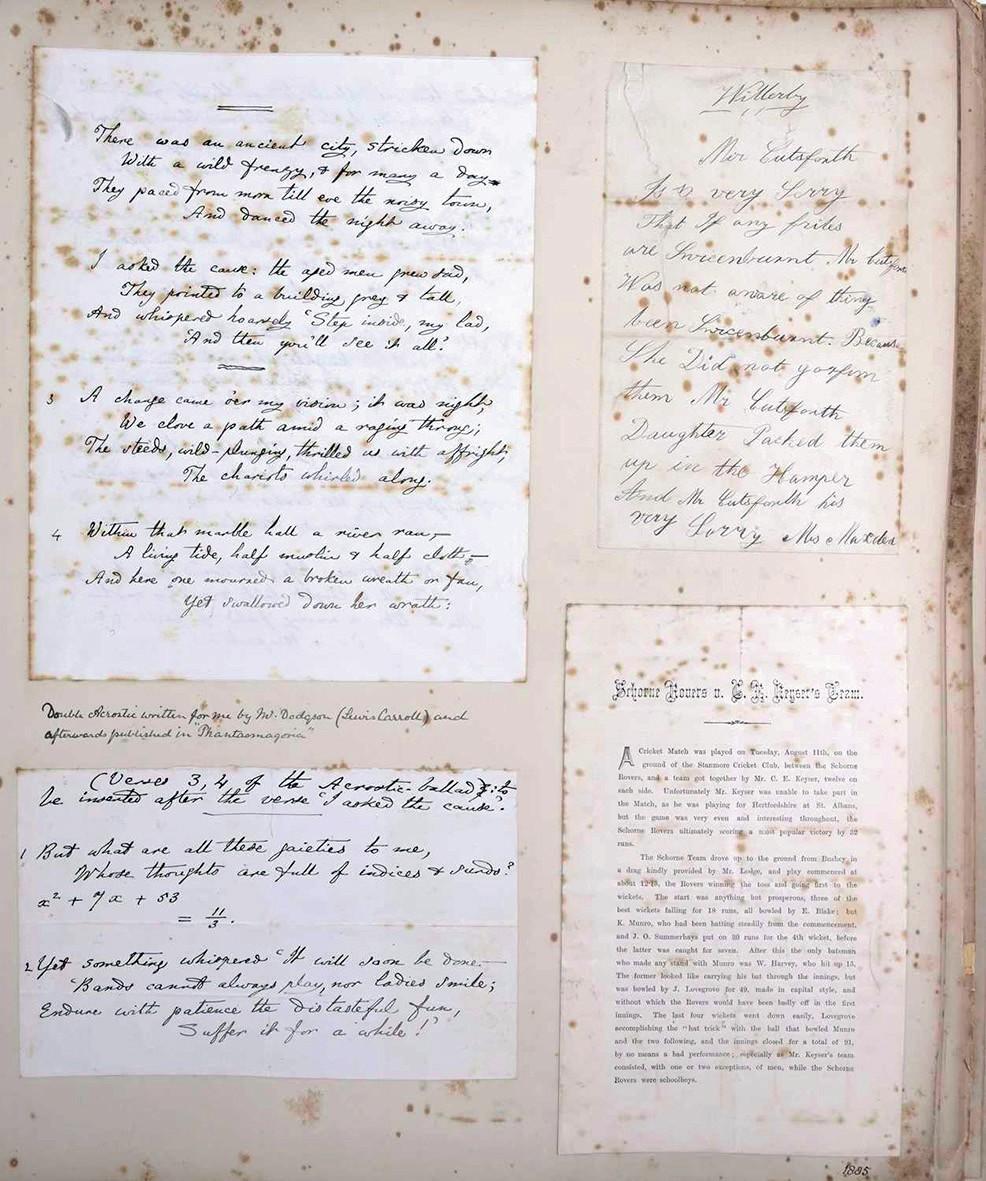 There was an ancient city, stricken down
With a wild frenzy, & for many a day
They paced from morn till eve the noisy town,
And danced the night away.
I asked the cause: the aged men grew sad,
They pointed to a building grey & tall,
And whispered hoarsely "Step inside, my lad,
And then you'll see it all".
3 A change came o'er my vision; it was night,
We clove a path amid a raging throng;
The steeds, wild-plunging, thrilled us with affright,
The chariots whirled along.
4 Within that marble hall a river ran,—
A living tide, half muslin & half cloth;—
And here one mourned a broken wreath or fan,
Yet swallowed down her wrath:
Double Acrostic written for me by Mr. Dodgson (Lewis Carroll) and
afterwards published in "Phantasmagoria"
(Verses 3, 4 of the Acrostic-ballad: to
be inserted after the verse "I asked the cause".
1 But what are all these gaieties to me,
Whose thoughts are full of indices & surds?
x² + 7x + 53
= 11/3.
2 Yet something whispered "It will soon be done.—
Bands cannot always play, nor ladies smile;
Endure with patience the distasteful fun,
Suffer it for a while!"
Willerby
Mr Cutsforth
Is very Sorry
That If any frites
are Sorcenburnt. Mr Cutsforth
Was not aware of thing
been Sorcenburnt. Because
She Did not
them Mr Cutsforth
Daughter Packed them
up in the Hamper
And Mr Cutsforth his
very Sorry Mrs
Schorne Rovers v. C. E. Keyser's Team.
A Cricket Match was played on Tuesday, August 11th, on the
ground of the Stanmore Cricket Club, between the Schorne
Rovers, and a team got together by Mr. C. E. Keyser, twelve on
each side. Unfortunately Mr. Keyser was unable to take part in
the Match, as he was playing for Hertfordshire at St. Albans,
but the game was very even and interesting throughout, the
Schorne Rovers ultimately scoring a most popular victory by 32
runs.
The Schorne Team drove up to the ground from Bushey in
a drag kindly provided by Mr. Ledge, and play commenced at
about 12-15, the Rovers winning the toss and going first to the
wickets. The start was anything but prosperous, three of the
best wickets falling for 18 runs, all bowled by E. Blake; but
K. Munro, who had been batting steadily from the commencement,
and J. O. Summerhays put on 30 runs for the 4th wicket, before
the latter was caught for seven. After this the only batsman
who made any stand with Munro was W. Harvey, who hit up 15.
The former looked like carrying his bat through the innings, but
was bowled by J. Lovegrove for 49, made in capital style, and
without which the Rovers would have been badly off in the first
innings. The last four wickets went down easily, Lovegrove
accomplishing the "hat trick" with the ball that bowled Munro
and the two following, and the innings closed for a total of 91,
by no means a bad performance; especially as Mr. Keyser's team
consisted, with one or two exceptions, of men, while the Schorne
Rovers were schoolboys.
1885